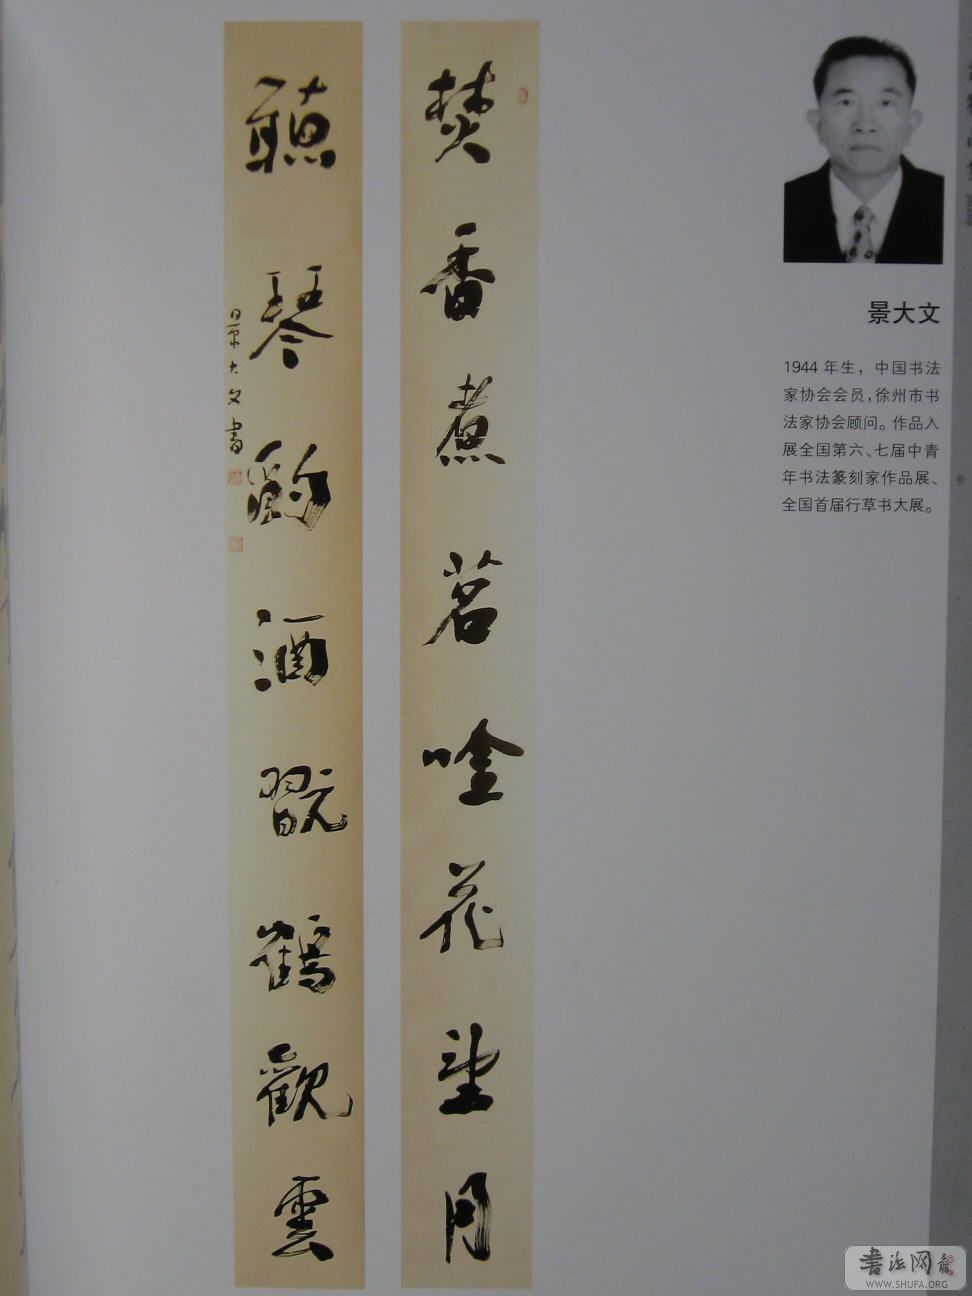 焚香煮茗唫花望月
聽琴酌酒翫鶴觀雲
景大文書
景大文
1944 年生，中国书法
家协会会员，徐州市书
法家协会顾问。作品入
展全国第六、七届中青
年书法篆刻家作品展、
全国首届行草书大展。
书法网
WWW.SHUFA.ORG